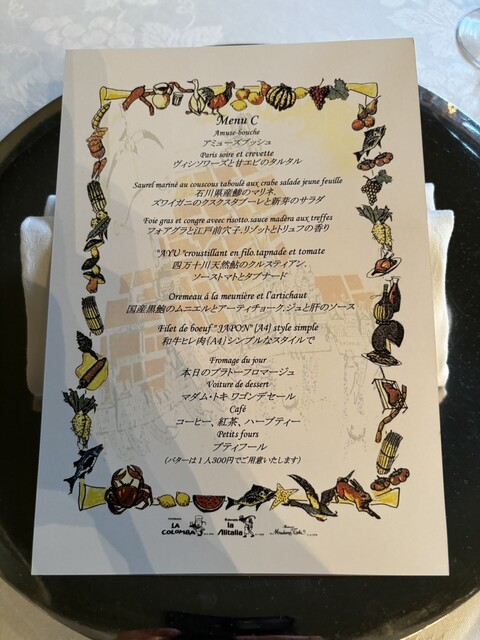 Menu C
Amuse-bouche
アミューズブッシュ
Paris soire et crevette
ヴィシソワーズと甘エビのタルタル
Saurel mariné au couscous taboulé aux crabe salade jeune feuille
石川県産鯵のマリネ、
ズワイガニのクスクスタブーレと新芽のサラダ
Foie gras et congre avec risotto.sauce madera aux treffes
フォアグラと江戸前穴子.リゾットとトリュフの香り
"AYU "croustillant en filo.tapnade et tomate
四万十川天然鮎のクルスティアン、
ソーストマトとタプナード
Oremeau á la meunière et l'artichaut
国産黒鮑のムニエルとアーティチョーク.ジュと肝のソース
Filet de boeuf " JAPON" {A4} style simple
和牛ヒレ肉{A4}シンプルなスタイルで
Fromage du jour
本日のプラトーフロマージュ
Voiture de dessert
マダム・トキ ワゴンデセール
Café
コーヒー、紅茶、ハーブティー
Petits fours
プティフール
(バターは1人300円でご用意いたします)
LA COLOMBA
la Alitalia